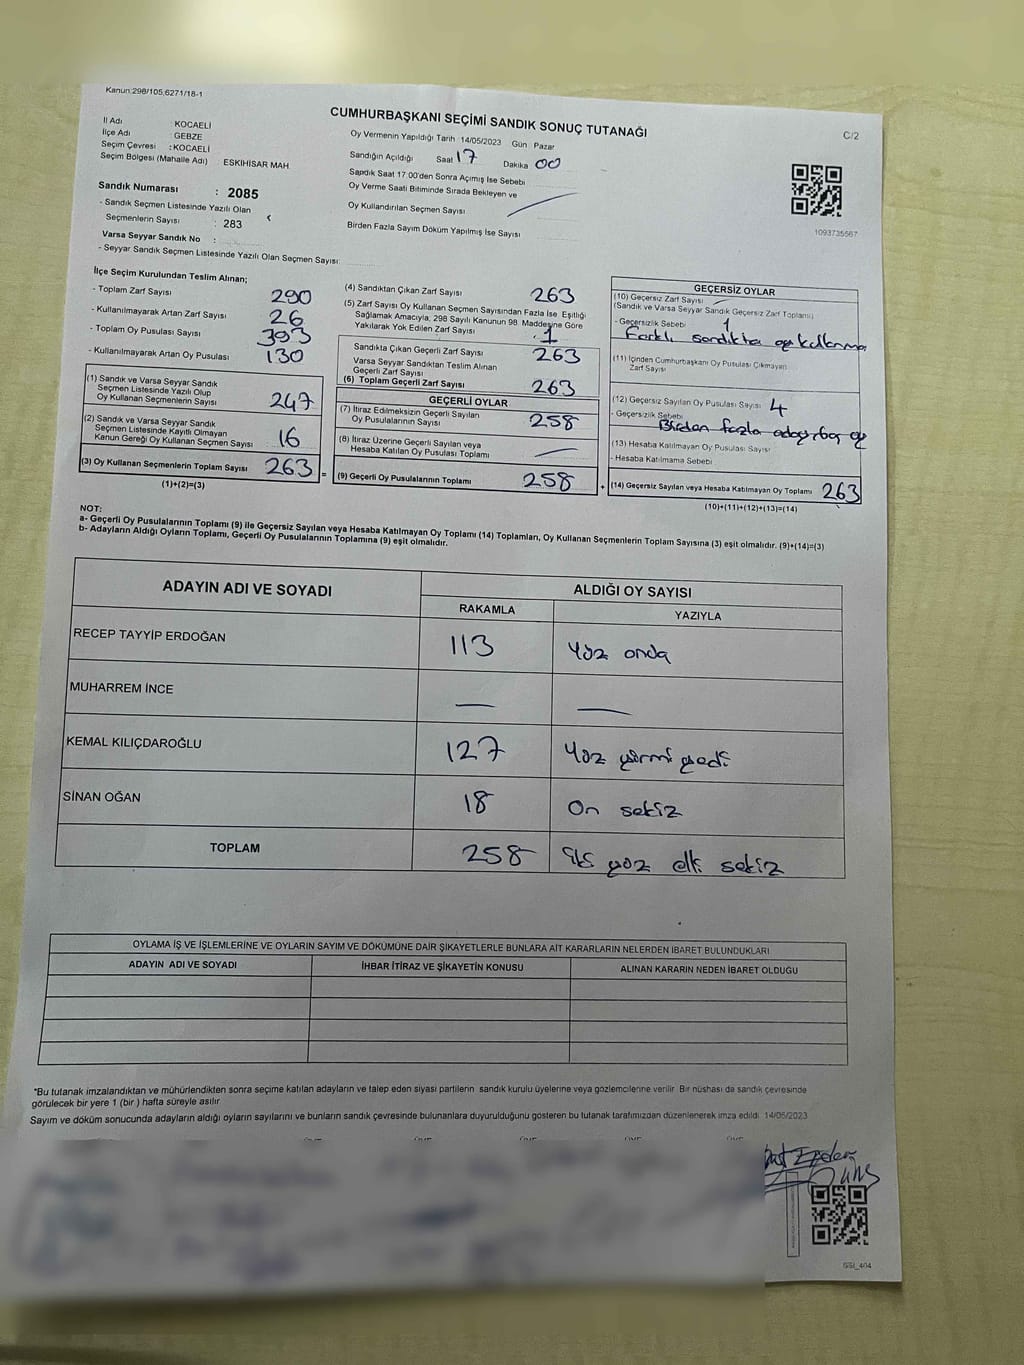 Kanun:298/105,6271/18-1
CUMHURBAŞKANI SEÇİMİ SANDIK SONUÇ TUTANAĞI
C/2
İl Adı : KOCAELİ
İlçe Adı : GEBZE
Seçim Çevresi : KOCAELİ
Seçim Bölgesi (Mahalle Adı) : ESKIHİSAR MAH
Sandık Numarası : 2085
- Sandık Seçmen Listesinde Yazılı Olan
Seçmenlerin Sayısı : 283
Varsa Seyyar Sandık No :
- Seyyar Sandık Seçmen Listesinde Yazılı Olan Seçmen Sayısı:
Oy Vermenin Yapıldığı Tarih 14/05/2023 Gün Pazar
Sandığın Açıldığı Saat 17 Dakika 00
Sandık Saat 17:00'den Sonra Açımış İse Sebebi
Oy Verme Saati Bitiminde Sırada Bekleyen ve
Oy Kullandırılan Seçmen Sayısı
Birden Fazla Sayım Döküm Yapılmış İse Sayısı
1093735567
İlçe Seçim Kurulundan Teslim Alınan;
- Toplam Zarf Sayısı 290
- Kullanılmayarak Artan Zarf Sayısı 26
- Toplam Oy Pusulası Sayısı 393
- Kullanılmayarak Artan Oy Pusulası 130
(1) Sandık ve Varsa Seyyar Sandık
Seçmen Listesinde Yazılı Olup
Oy Kullanan Seçmenlerin Sayısı 247
(2) Sandık ve Varsa Seyyar Sandık
Seçmen Listesinde Kayıtlı Olmayan
Kanun Gereği Oy Kullanan Seçmen Sayısı 16
(3) Oy Kullanan Seçmenlerin Toplam Sayısı 263 =
(1)+(2)=(3)
(4) Sandıktan Çıkan Zarf Sayısı 263
(5) Zarf Sayısı Oy Kullanan Seçmen Sayısından Fazla İse Eşitliği
Sağlamak Amacıyla, 298 Sayılı Kanunun 98. Maddesine Göre
Yakılarak Yok Edilen Zarf Sayısı 1
Sandıkta Çıkan Geçerli Zarf Sayısı 263
Varsa Seyyar Sandıktan Teslim Alınan
Geçerli Zarf Sayısı
(6) Toplam Geçerli Zarf Sayısı 263
GEÇERLİ OYLAR
(7) İtiraz Edilmeksizin Geçerli Sayılan
Oy Pusulalarının Sayısı 258
(8) İtiraz Üzerine Geçerli Sayılan veya
Hesaba Katılan Oy Pusulası Toplamı —
(9) Geçerli Oy Pusulalarının Toplamı 258 +
GEÇERSİZ OYLAR
(10) Geçersiz Zarf Sayısı
(Sandık ve Varsa Seyyar Sandık Geçersiz Zarf Toplamı)
- Geçersizlik Sebebi 1
Farklı sandıkta oy kullanma
(11) İçinden Cumhurbaşkanı Oy Pusulası Çıkmayan
Zarf Sayısı
(12) Geçersiz Sayılan Oy Pusulası Sayısı 4
- Geçersizlik Sebebi
Birden fazla adaya oy
(13) Hesaba Katılmayan Oy Pusulası Sayısı
- Hesaba Katılmama Sebebi
(14) Geçersiz Sayılan veya Hesaba Katılmayan Oy Toplamı 263
(10)+(11)+(12)+(13)=(14)
NOT:
a- Geçerli Oy Pusulalarının Toplamı (9) ile Geçersiz Sayılan veya Hesaba Katılmayan Oy Toplamı (14) Toplamları, Oy Kullanan Seçmenlerin Toplam Sayısına (3) eşit olmalıdır. (9)+(14)=(3)
b- Adayların Aldığı Oyların Toplamı, Geçerli Oy Pusulalarının Toplamına (9) eşit olmalıdır.
ADAYIN ADI VE SOYADI ALDIĞI OY SAYISI
RAKAMLA YAZIYLA
RECEP TAYYİP ERDOĞAN 113 Yüz
MUHARREM İNCE — —
KEMAL KILIÇDAROĞLU 127 Yüz yirmi yedi
SİNAN OĞAN 18 On sekiz
TOPLAM 258 iki yüz elli sekiz
OYLAMA İŞ VE İŞLEMLERİNE VE OYLARIN SAYIM VE DÖKÜMÜNE DAİR ŞİKAYETLERLE BUNLARA AİT KARARLARIN NELERDEN İBARET BULUNDUKLARI
ADAYIN ADI VE SOYADI İHBAR İTİRAZ VE ŞİKAYETİN KONUSU ALINAN KARARIN NEDEN İBARET OLDUĞU
*Bu tutanak imzalandıktan ve mühürlendikten sonra seçime katılan adayların ve talep eden siyasi partilerin sandık kurulu üyelerine veya gözlemcilerine verilir. Bir nüshası da sandık çevresinde
görülecek bir yere 1 (bir ) hafta süreyle asılır.
Sayım ve döküm sonucunda adayların aldığı oyların sayılarını ve bunların sandık çevresinde bulunanlara duyurulduğunu gösteren bu tutanak tarafımızdan düzenlenerek imza edildi. 14/05/2023